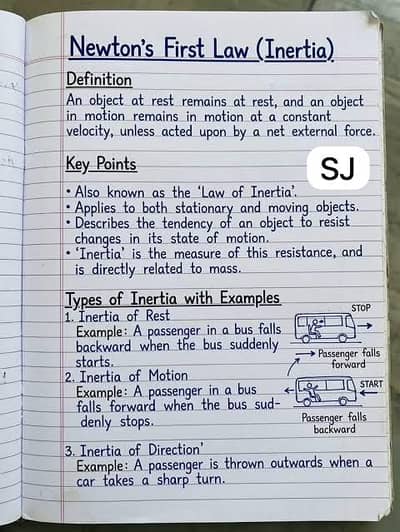 Newton's First Law (Inertia)
Definition
An object at rest remains at rest, and an object
in motion remains in motion at a constant
velocity, unless acted upon by a net external force.
Key Points
SJ
• Also known as the 'Law of Inertia'.
• Applies to both stationary and moving objects.
• Describes the tendency of an object to resist
changes in its state of motion.
• 'Inertia' is the measure of this resistance, and
is directly related to mass.
Types of Inertia with Examples
1. Inertia of Rest
Example: A passenger in a bus falls
backward when the bus suddenly
starts.
STOP
Passenger falls
forward
2. Inertia of Motion
Example: A passenger in a bus
falls forward when the bus sud-
denly stops.
START
Passenger falls
backward
3. Inertia of Direction'
Example: A passenger is thrown outwards when a
car takes a sharp turn.